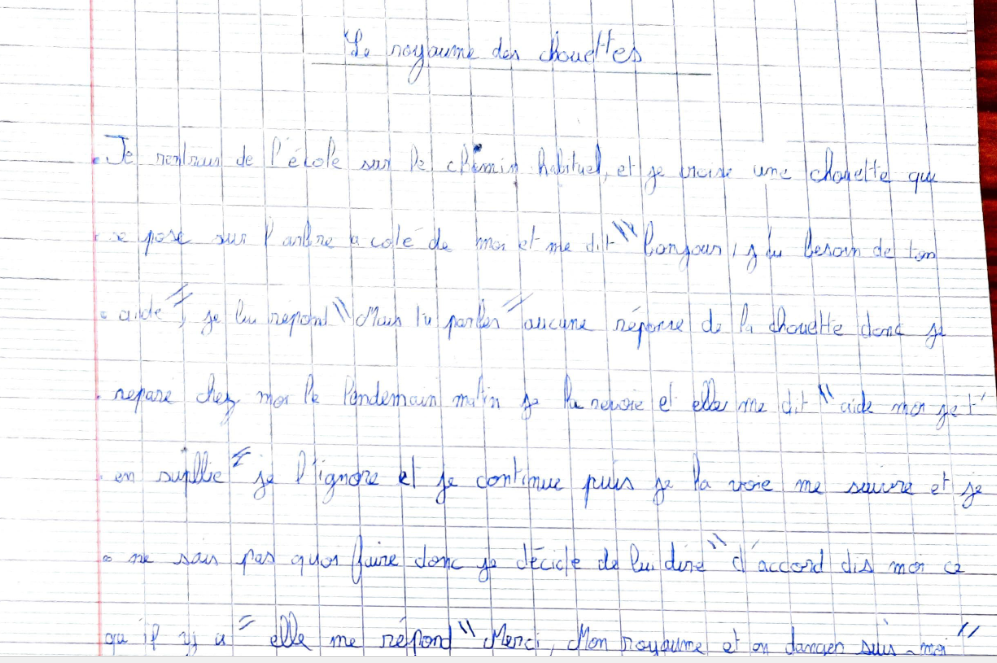 Le royaume des chouettes
Je rentrais de l'école sur le chemin habituel, et je croise une chouette qui
se pose sur l'arbre a coté de moi et me dit "Bonjour, j'ai besoin de ton
aide", je lui repond "Mais tu parles" aucune réponse de la chouette donc je
repare chez moi le lendemain matin je la revoie et elle me dit "aide moi je t'
en supllie" je l'ignore et je continue puis je la voie me suivre et je
ne sais pas quoi faire donc je décide de lui dire "d'accord dis moi ce
qu'il y a" elle me répond "Merci, Mon royaume et en danger suis-moi"